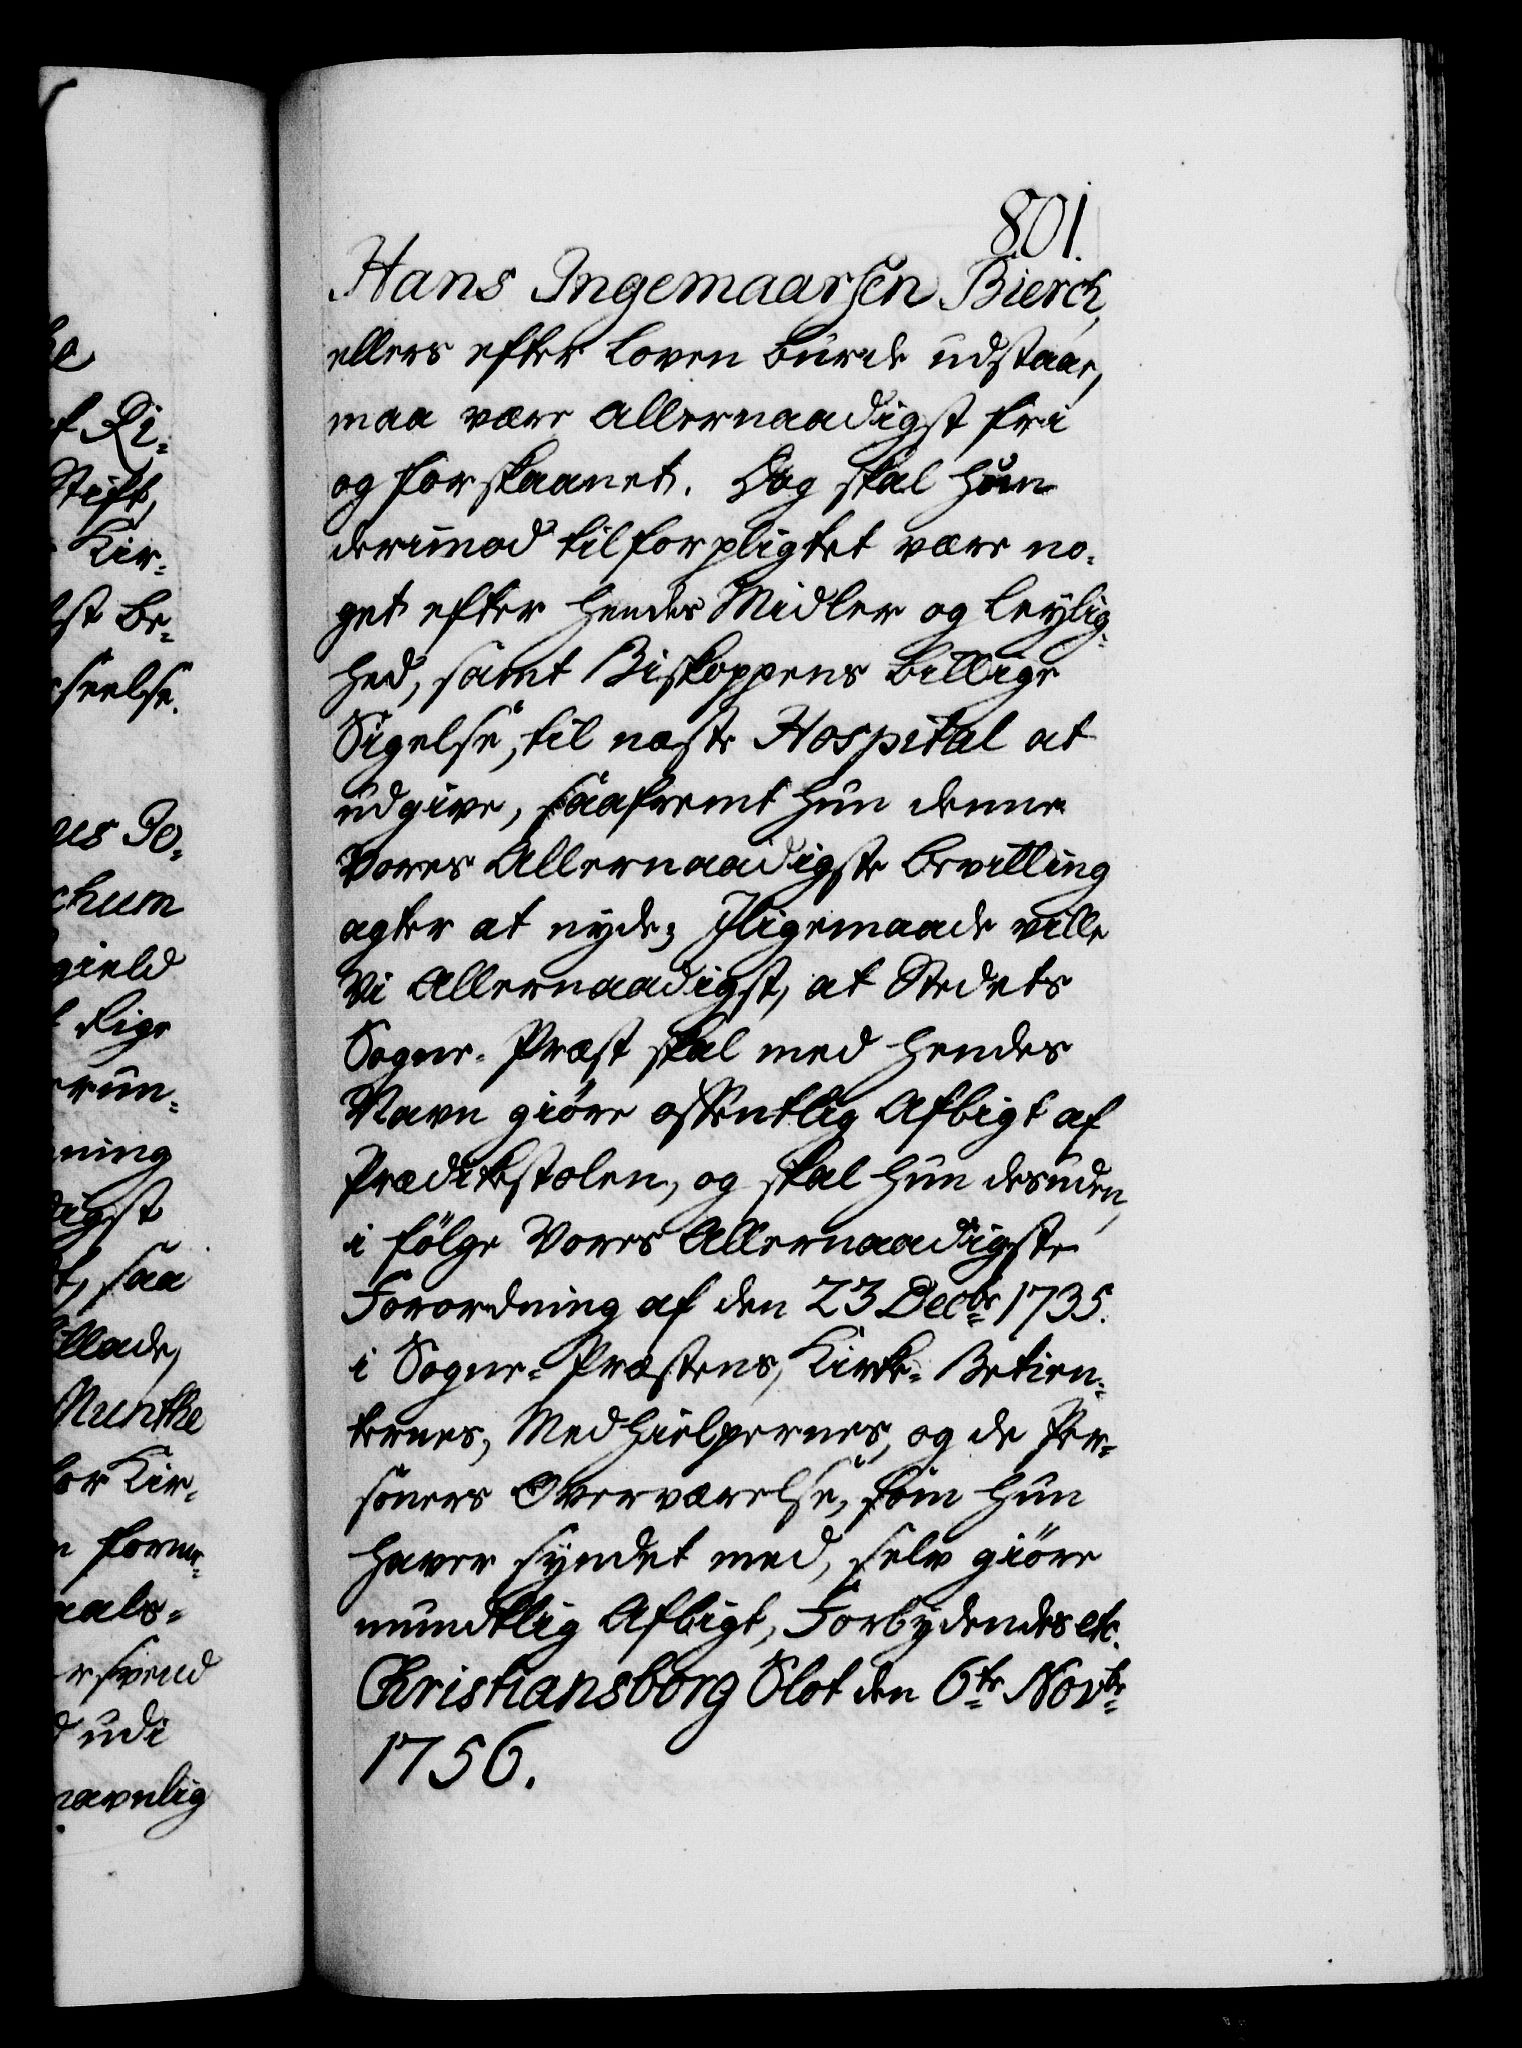 801.
Hans Ingemaarsen Bierch,
ellers efter Loven burde udstaae,
maa være allernaadigst fri
og forskaanet. Dog skal hun
derimod tilforpligtet være no-
get efter hendes Midler og Leylig-
hed, samt Biskoppens billige
Sigelse, til næste Hospital at
udgive, saafremt hun denne
Vores Allernaadigste Bevilling
agter at nyde; Iligemaade ville
Vi Allernaadigst, at Stedets
Sogne-Præst skal med hendes
Navn giøre offentlig Afbigt af
Prædikestolen, og skal hun desuden,
i følge Vores Allernaadigste
Forordning af den 23 Decbr 1735.
i Sogne-Præstens, Kirke-Betien-
ternes, Medhielpernes, og de Per-
soners Overværelse, som hun
haver syndet med, selv giøre
mundtlig Afbigt, Forbydendes etc.
Christiansborg Slot den 6te Novbr
1756.
f Ri-
Stift,
Kir-
gst Be-
seelse.
es Jo-
chum
gield
t lige
run-
ning
digst
t, saa
illade,
Munthe
for Kir-
n forme-
aals-
r svend
d udi
navnlig